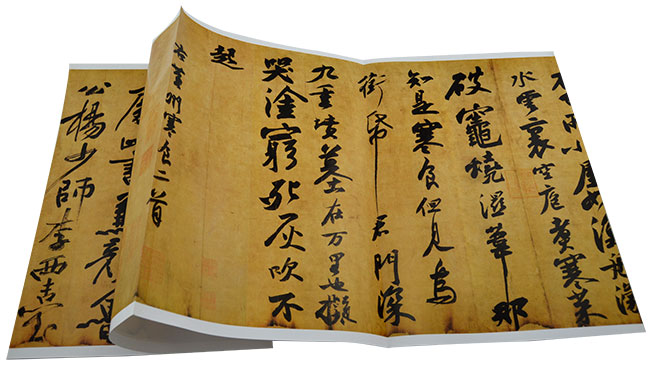 小屋如漁舟
水雲裏空庖煮寒菜
破竈燒濕葦那
知是寒食但見烏
銜帋君門深
九重墳墓在万里也擬
哭塗窮死灰吹不
起
右黃州寒食二首
此書兼顏魯
公楊少師李西臺